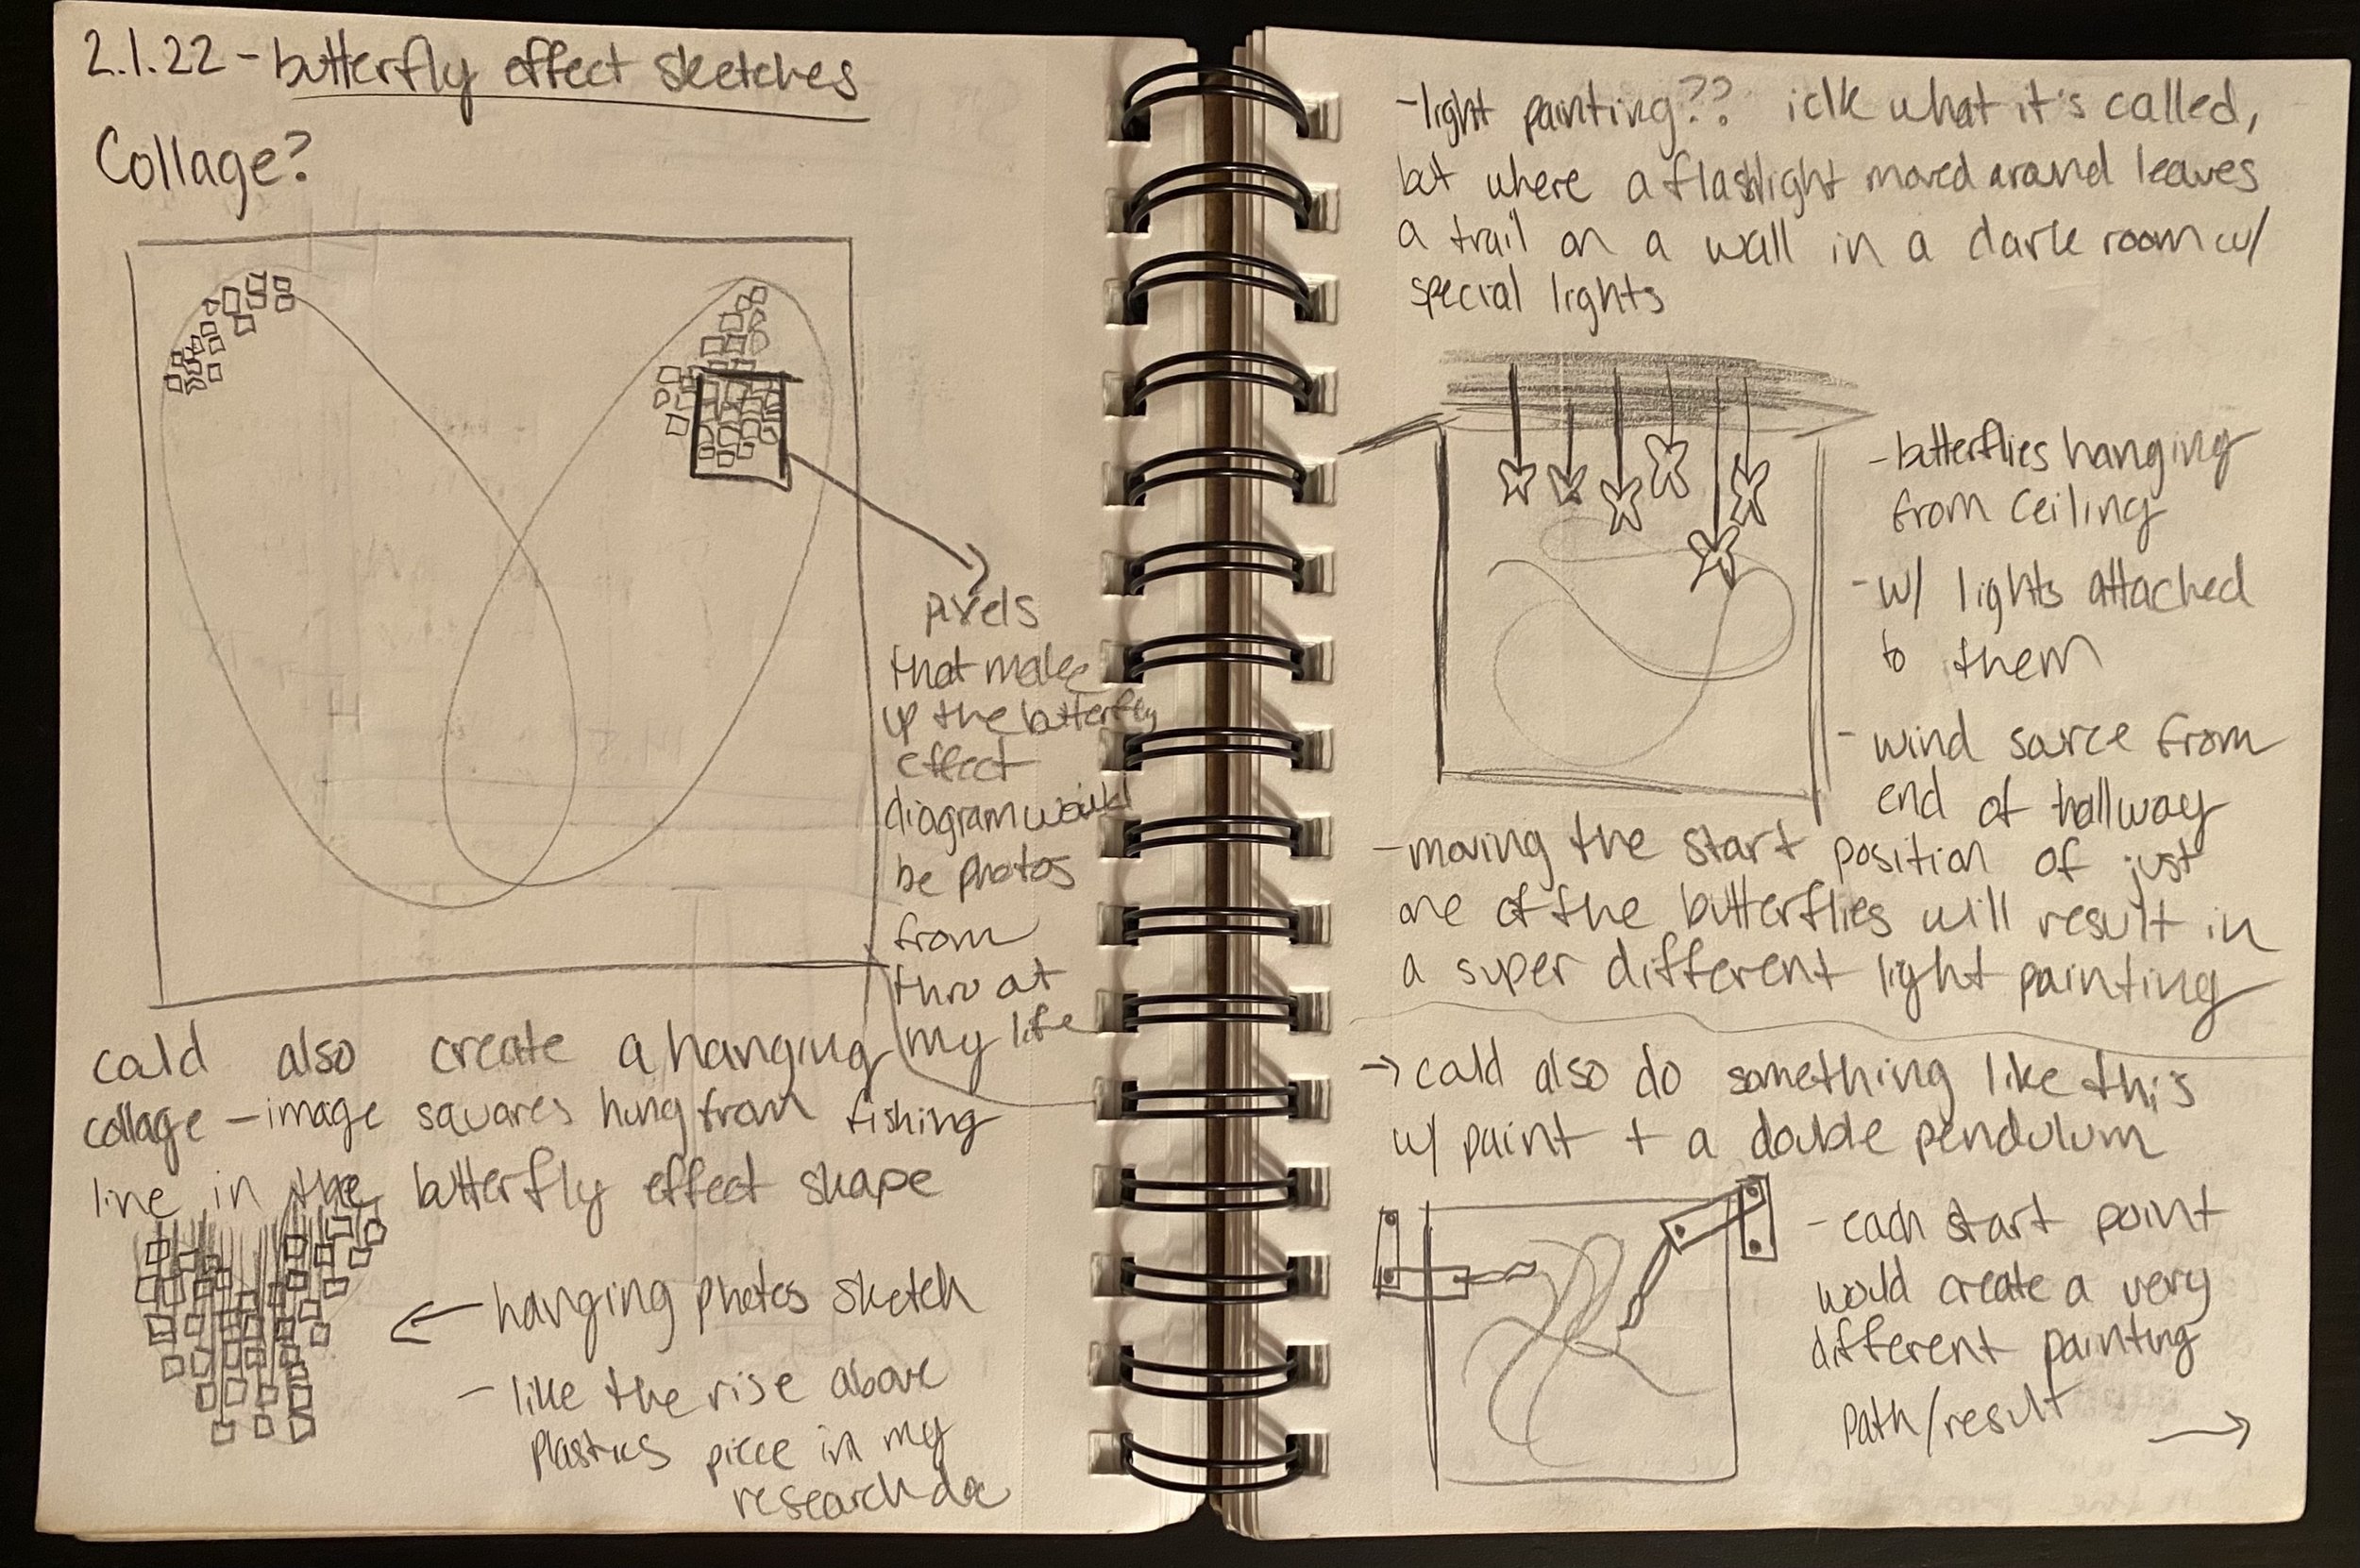 2.1.22 - butterfly effect sketches
Collage?
pixels
that make
up the butterfly
effect
diagram would
be photos
from
thru out
my life
could also create a hanging
collage - image squares hung from fishing
line in the butterfly effect shape
← hanging photos sketch
- like the rise above
plastics piece in my
research doc
- light painting?? idk what it's called,
but where a flashlight moved around leaves
a trail on a wall in a dark room w/
special lights
- butterflies hanging
from ceiling
- w/ lights attached
to them
- wind source from
end of hallway
- moving the start position of just
one of the butterflies will result in
a super different light painting
→ could also do something like this
w/ paint + a double pendulum
- each start point
would create a very
different painting
path/result
→